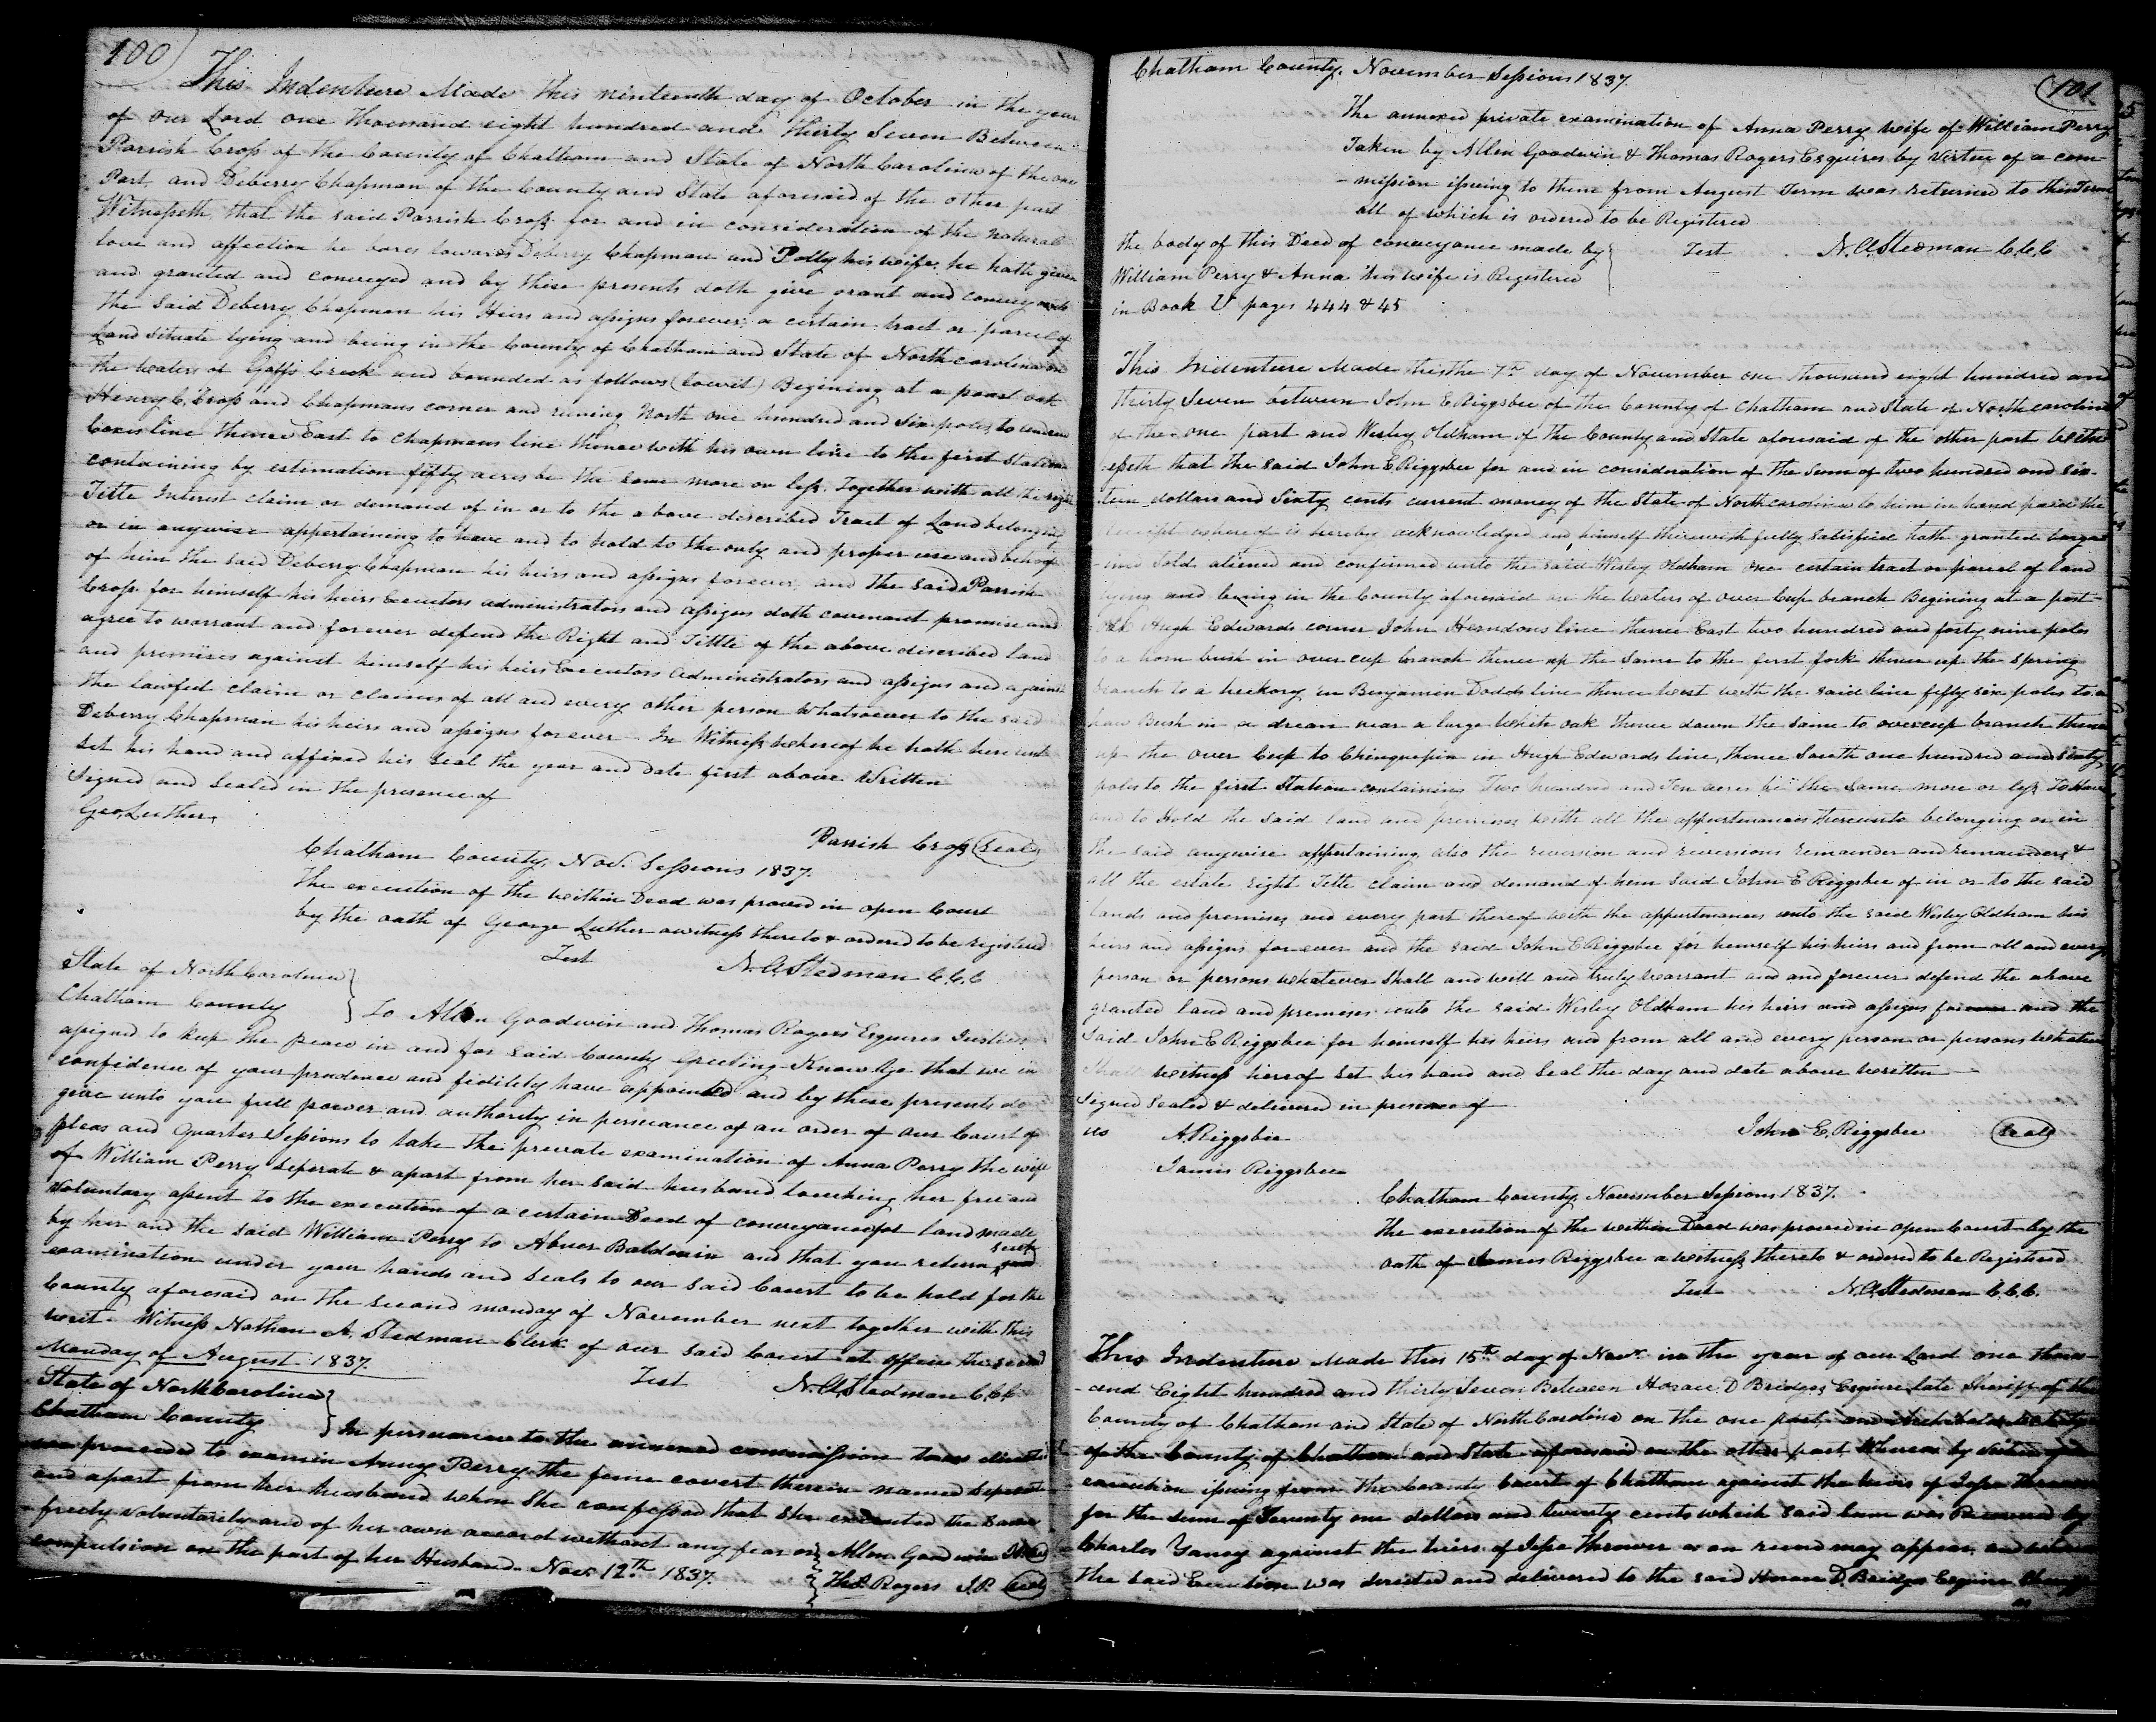 100
This Indenture Made this ninteenth day of October in the year
of our Lord one Thousand eight hundred and thirty Seven Between
Parrish Cross of the County of Chatham and State of North Carolina of the one
Part, and Deberry Chapman of the County and State aforesaid of the other part
Witnesseth that the said Parrish Cross for and in consideration of the natural
love and affection he bares towards Deberry Chapman and Polly his wife, he hath given
and granted and conveyed and by these presents doth give grant and convey unto
the said Deberry Chapman his Heirs and assigns forever, a certain tract or parcel of
Land Situate lying and being in the County of Chatham and State of North carolina on
the waters of Goffs Creek and bounded as follows (towit) Begining at a poast oak
Henry C. Cross and Chapmans corner and runing North one hundred and Six poles to
line thence East to Chapmans line thence with his own line to the first Station
containing by estimation fifty acres be the same more or less. Together with all the right
Title Interest claim or demand of in or to the above discribed Tract of Land belonging
or in anywise appertaining to have and to hold to the only and proper use and behoof
of him the said Deberry Chapman his heirs and assigns forever, and the said Parrish
Cross for himself his heirs Executors administrators and assigns doth covenant promise and
agree to warrant and forever defend the Right and Tittle of the above discribed land
and premises against himself his heirs Executors Administrators and assigns and against
the lawfed claim or claims of all and every other person Whatsoever to the said
Deberry Chapman his heirs and assigns forever In Witness whereof he hath here unto
Set his hand and affixed his Seal the year and date first above Written
Signed and Sealed in the presence of
Geo, Luther,
Parrish Cross (Seal)
Chatham County, Nov. Sessions 1837.
The execution of the within Deed was proved in open Court
by the oath of George Luther a witness thereto & ordered to be registered
Test N. A. Stedman C.C.C
State of North Carolina
Chatham County } To Allen Goodwin and Thomas Rogers Esquires Justices
assigned to keep the peace in and for said County Greeting. Know Ye that we in
confidence of your prudence and fidility have appointed and by these presents do
give unto you full power and authority in persuance of an order of our Court of
pleas and Quarter Sessions to take the private examination of Anna Perry the wife
of William Perry Seperate & apart from her said husband touching her free and
voluntary assent to the execution of a certain Deed of conveyance for land made
by her and the said William Perry to Abner Baldwin and that you return such
examination under your hands and seals to our said Court to be held for the
County aforesaid on the second monday of November next together with this
writ. Witness Nathan A. Stedman Clerk of our said Court at office the second
Monday of August 1837.
Test N. A. Stedman C.C.C
State of North Carolina
Chatham County } In persuance to the annexed commission to us directed
we proceeded to examin Anny Perry the feme covert therein named Seperate
and apart from her husband when She confessed that she executed the Same
freely voluntarily and of her own accord without any fear or } Allen Goodwin
compulsion on the part of her Husband. Nov. 12th 1837. } Thos. Rogers J.P. (Seal)
Chatham County, November Sessions 1837.
101
The annexed private examination of Anna Perry wife of William Perry
Taken by Allen Goodwin & Thomas Rogers Esquires by virtue of a com-
-mission issueing to them from August Term was returned to this Term
all of which is ordered to be Registered
the body of this Deed of conveyance made by } Test N. A. Stedman C.C.C
William Perry & Anna his wife is Registered
in Book pages 444 & 45
This Indenture Made this the 7th day of November one thousand eight hundred and
thirty Seven between John E Riggsbee of the County of Chatham and State of North carolina
of the one part and Wesley Oldham of the County and State aforesaid of the other part Witn-
esseth that the said John E Riggsbee for and in consideration of the Sum of two hundred and six-
teen dollars and Sixty cents current money of the State of North carolina to him in hand paid the
receipt whereof is hereby acknowledged and himself therewith fully Satisfied hath granted bargai-
ined Sold aliened and confirmed unto the said Wesley Oldham one certain tract or parcel of land
lying and being in the County aforesaid on the waters of over Cup branch Begining at a post-
oak Hugh Edwards corner John Herndons line thence East two hundred and forty nine poles
to a horn bush in over cup branch thence up the same to the first fork thence up the Spring
branch to a heckory in Benjamin Dodds line thence west with the said line fifty six poles to a
haw Bush in a drean near a large white oak thence down the same to overcup branch thence
up the over Cup to Chinquepin in Hugh Edwards line, thence South one hundred and sixty
poles to the first Station containing Two hundred and Ten acres be the Same, more or less, To Have
and to Hold the Said land and premises with all the appurtenances thereunto belonging or in
the said anywise appertaining also the reversion and reversions remainder and remainders, &
all the estate right Title claim and demand of him said John E Riggsbee of in or to the said
lands and premises, and every part thereof with the appurtenances unto the said Wesley Oldham his
heirs and assigns forever and the said John E Riggsbee for himself his heirs and from all and every
person or persons whatever Shall and will and truly warrant and and forever defend the above
granted land and premises unto the said Wesley Oldham his heirs and assigns forever and the
Said John E Riggsbee for himself his heirs and from all and every person or persons whatever
Shall witness hereof Set his hand and Seal the day and date above written
Signed Sealed & delivered in presence of
us A. Riggsbee John E. Riggsbee (Seal)
James Riggsbee
Chatham County, November Sessions 1837.
The execution of the within Deed was proved in open Court by the
oath of James Riggsbee a witness thereto & ordered to be Registered
Test N. A. Stedman C.C.C.
This Indenture Made this 15th day of Novr. in the year of our Lord one thous-
-and Eight hundred and thirty Seven Between Horace D Bridges Esquire Late Sheriff of the
County of Chatham and State of North Carolina on the one part, and
of the County of Chatham and State aforesaid on the other part Whereas by virtue of an
execution issuing from the County Court of Chatham against the heirs of Jesse Thrower
for the sum of Seventy one dollars and twenty cents which said sum was Recovered by
Charles Yancy against the heirs of Jesse Thrower as on record may appear, and whereas
the said Execution was directed and delivered to the said Horace D. Bridges Esquire